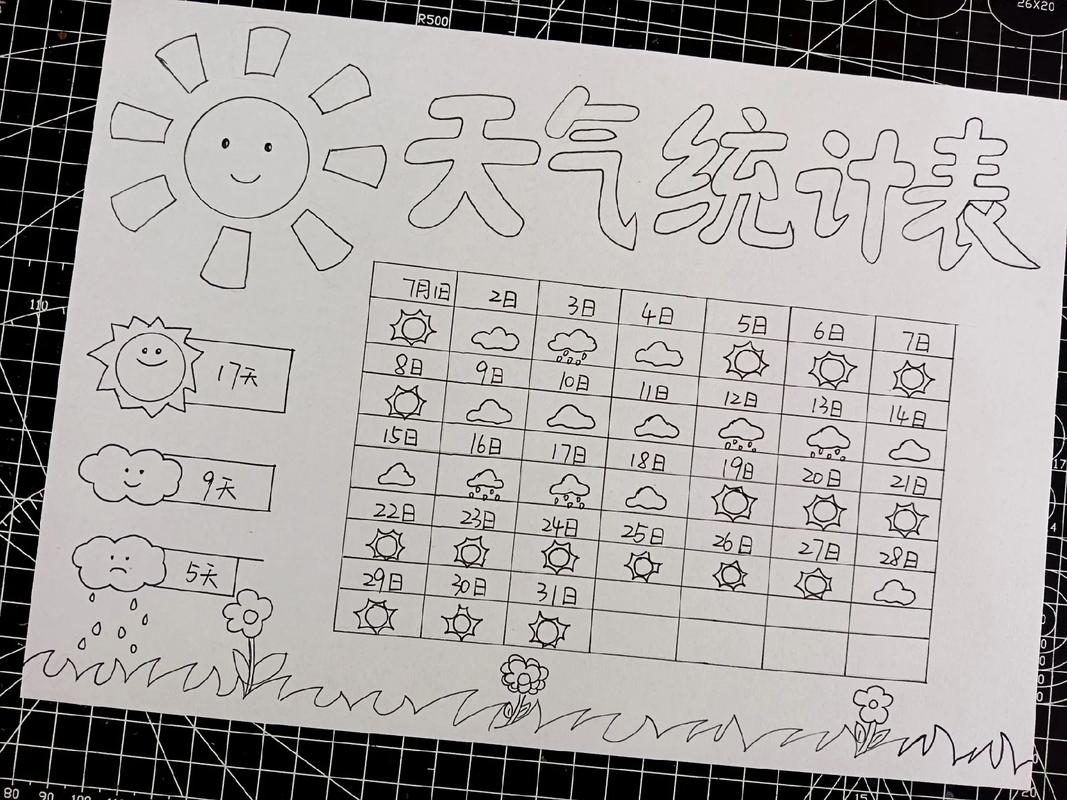 R500
26X20
天气统计表
110
7月1日 2日 3日 4日 5日 6日 7日
8日 9日 10日 11日 12日 13日 14日
15日 16日 17日 18日 19日 20日 21日
22日 23日 24日 25日 26日 27日 28日
29日 30日 31日
17天
9天
5天
80 90